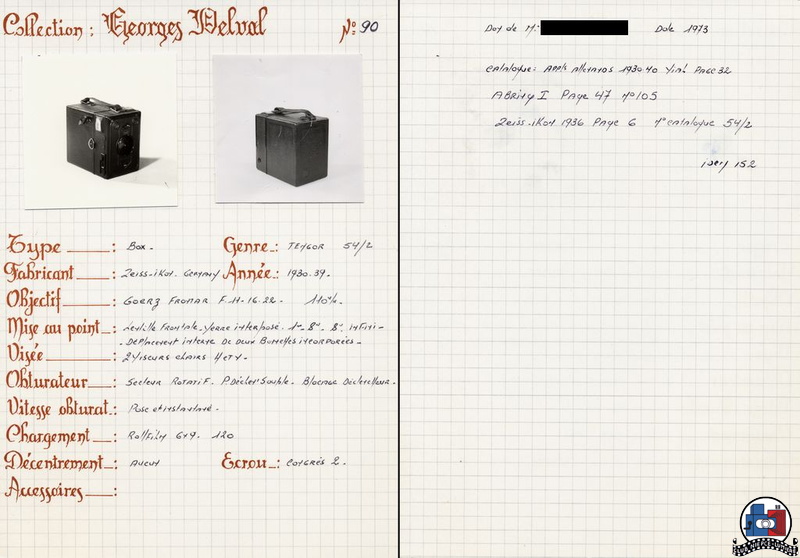 Collection : Georges Delval Nº 90
Type : Box.
Genre : TENGOR 54/2
Fabricant : Zeiss-iKon. Germany
Année : 1930.39.
Objectif : GOERZ FRONAR F.11-16-22.
Mise au point : Lentille Frontale.
Déplacement interne de deux Bonnettes incorporées.
Visée : 2 Viseurs clairs
Obturateur : Secteur Rotatif.
Vitesse obturat. : Pose et instantané.
Chargement : Rollfilm 6x9. 120
Décentrement : Aucun
Ecrou : Congrès 2.
Accessoires :
Don de Mr Date 1973
Catalogue: 1930.40 Page 32
ABRING I Page 47 nº105
Zeiss-ikon 1936 Page 6 nº catalogue 54/2
152